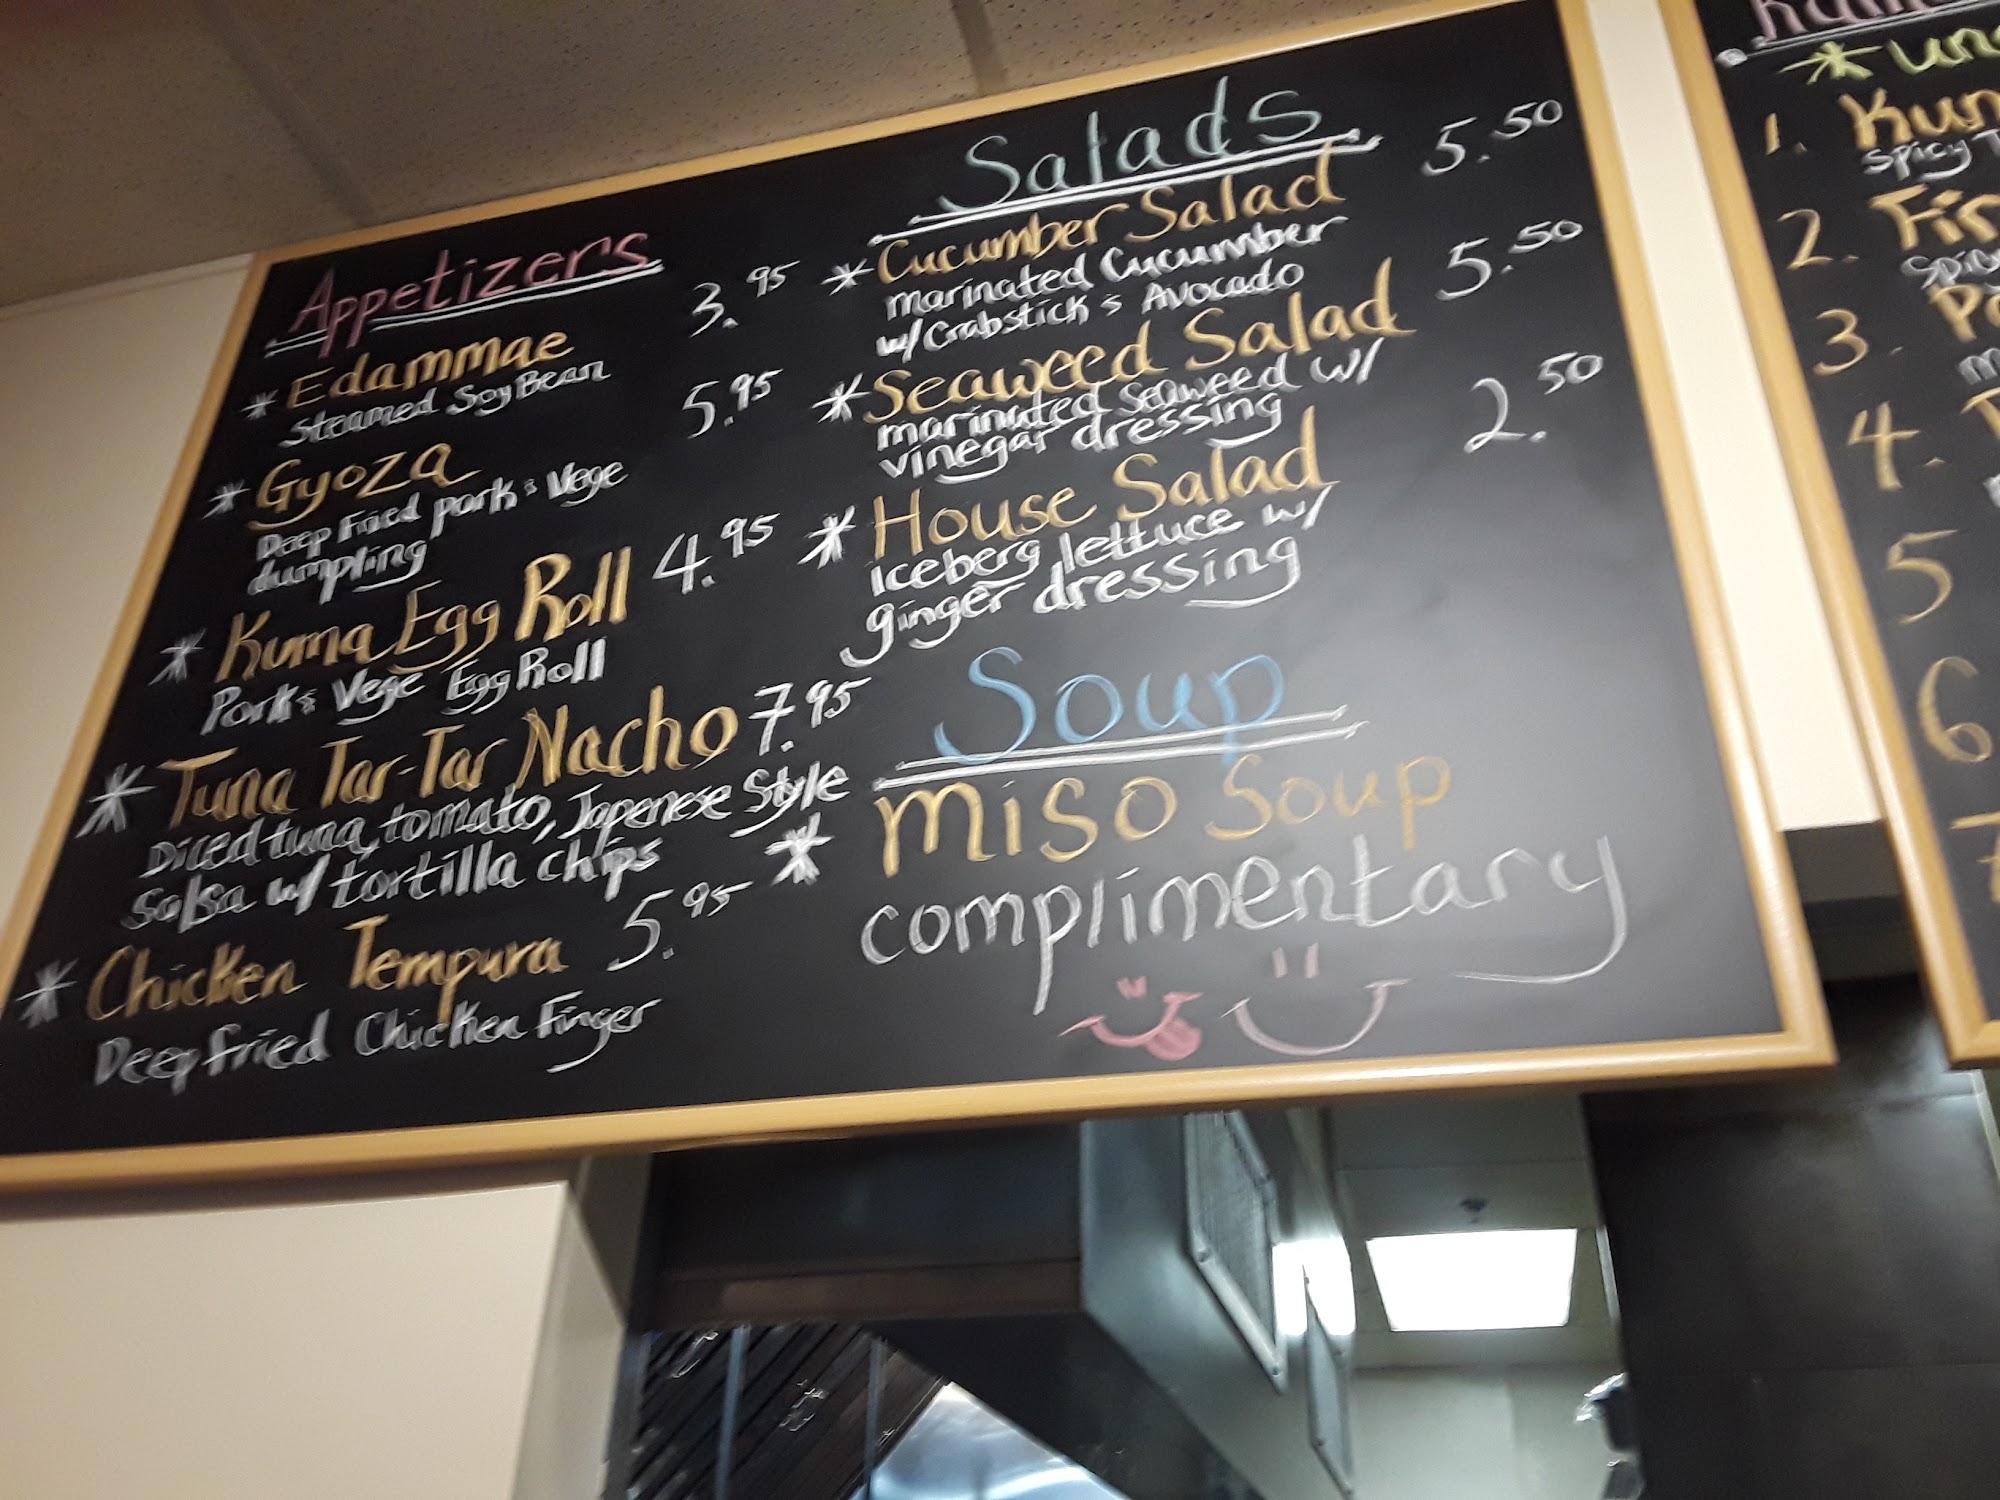 Appetizers
* Edammae 3.95
Steamed Soy Bean
* Gyoza 5.95
Deep Fried pork & Vege
dumpling
* Kuma Egg Roll 4.95
Pork & Vege Egg Roll
* Tuna Tar-Tar Nacho 7.95
Diced tuna, tomato, Japenese Style
Salsa w/ tortilla chips
* Chicken Tempura 5.95
Deep fried Chicken Finger
Salads
* Cucumber Salad 5.50
marinated Cucumber
w/ Crabstick & Avocado
* Seaweed Salad 5.50
marinated Seaweed w/
vinegar dressing
* House Salad 2.50
Iceberg lettuce w/
ginger dressing
Soup
* Miso Soup
complimentary
1.
Spicy
2.
3.
4.
5
6
7